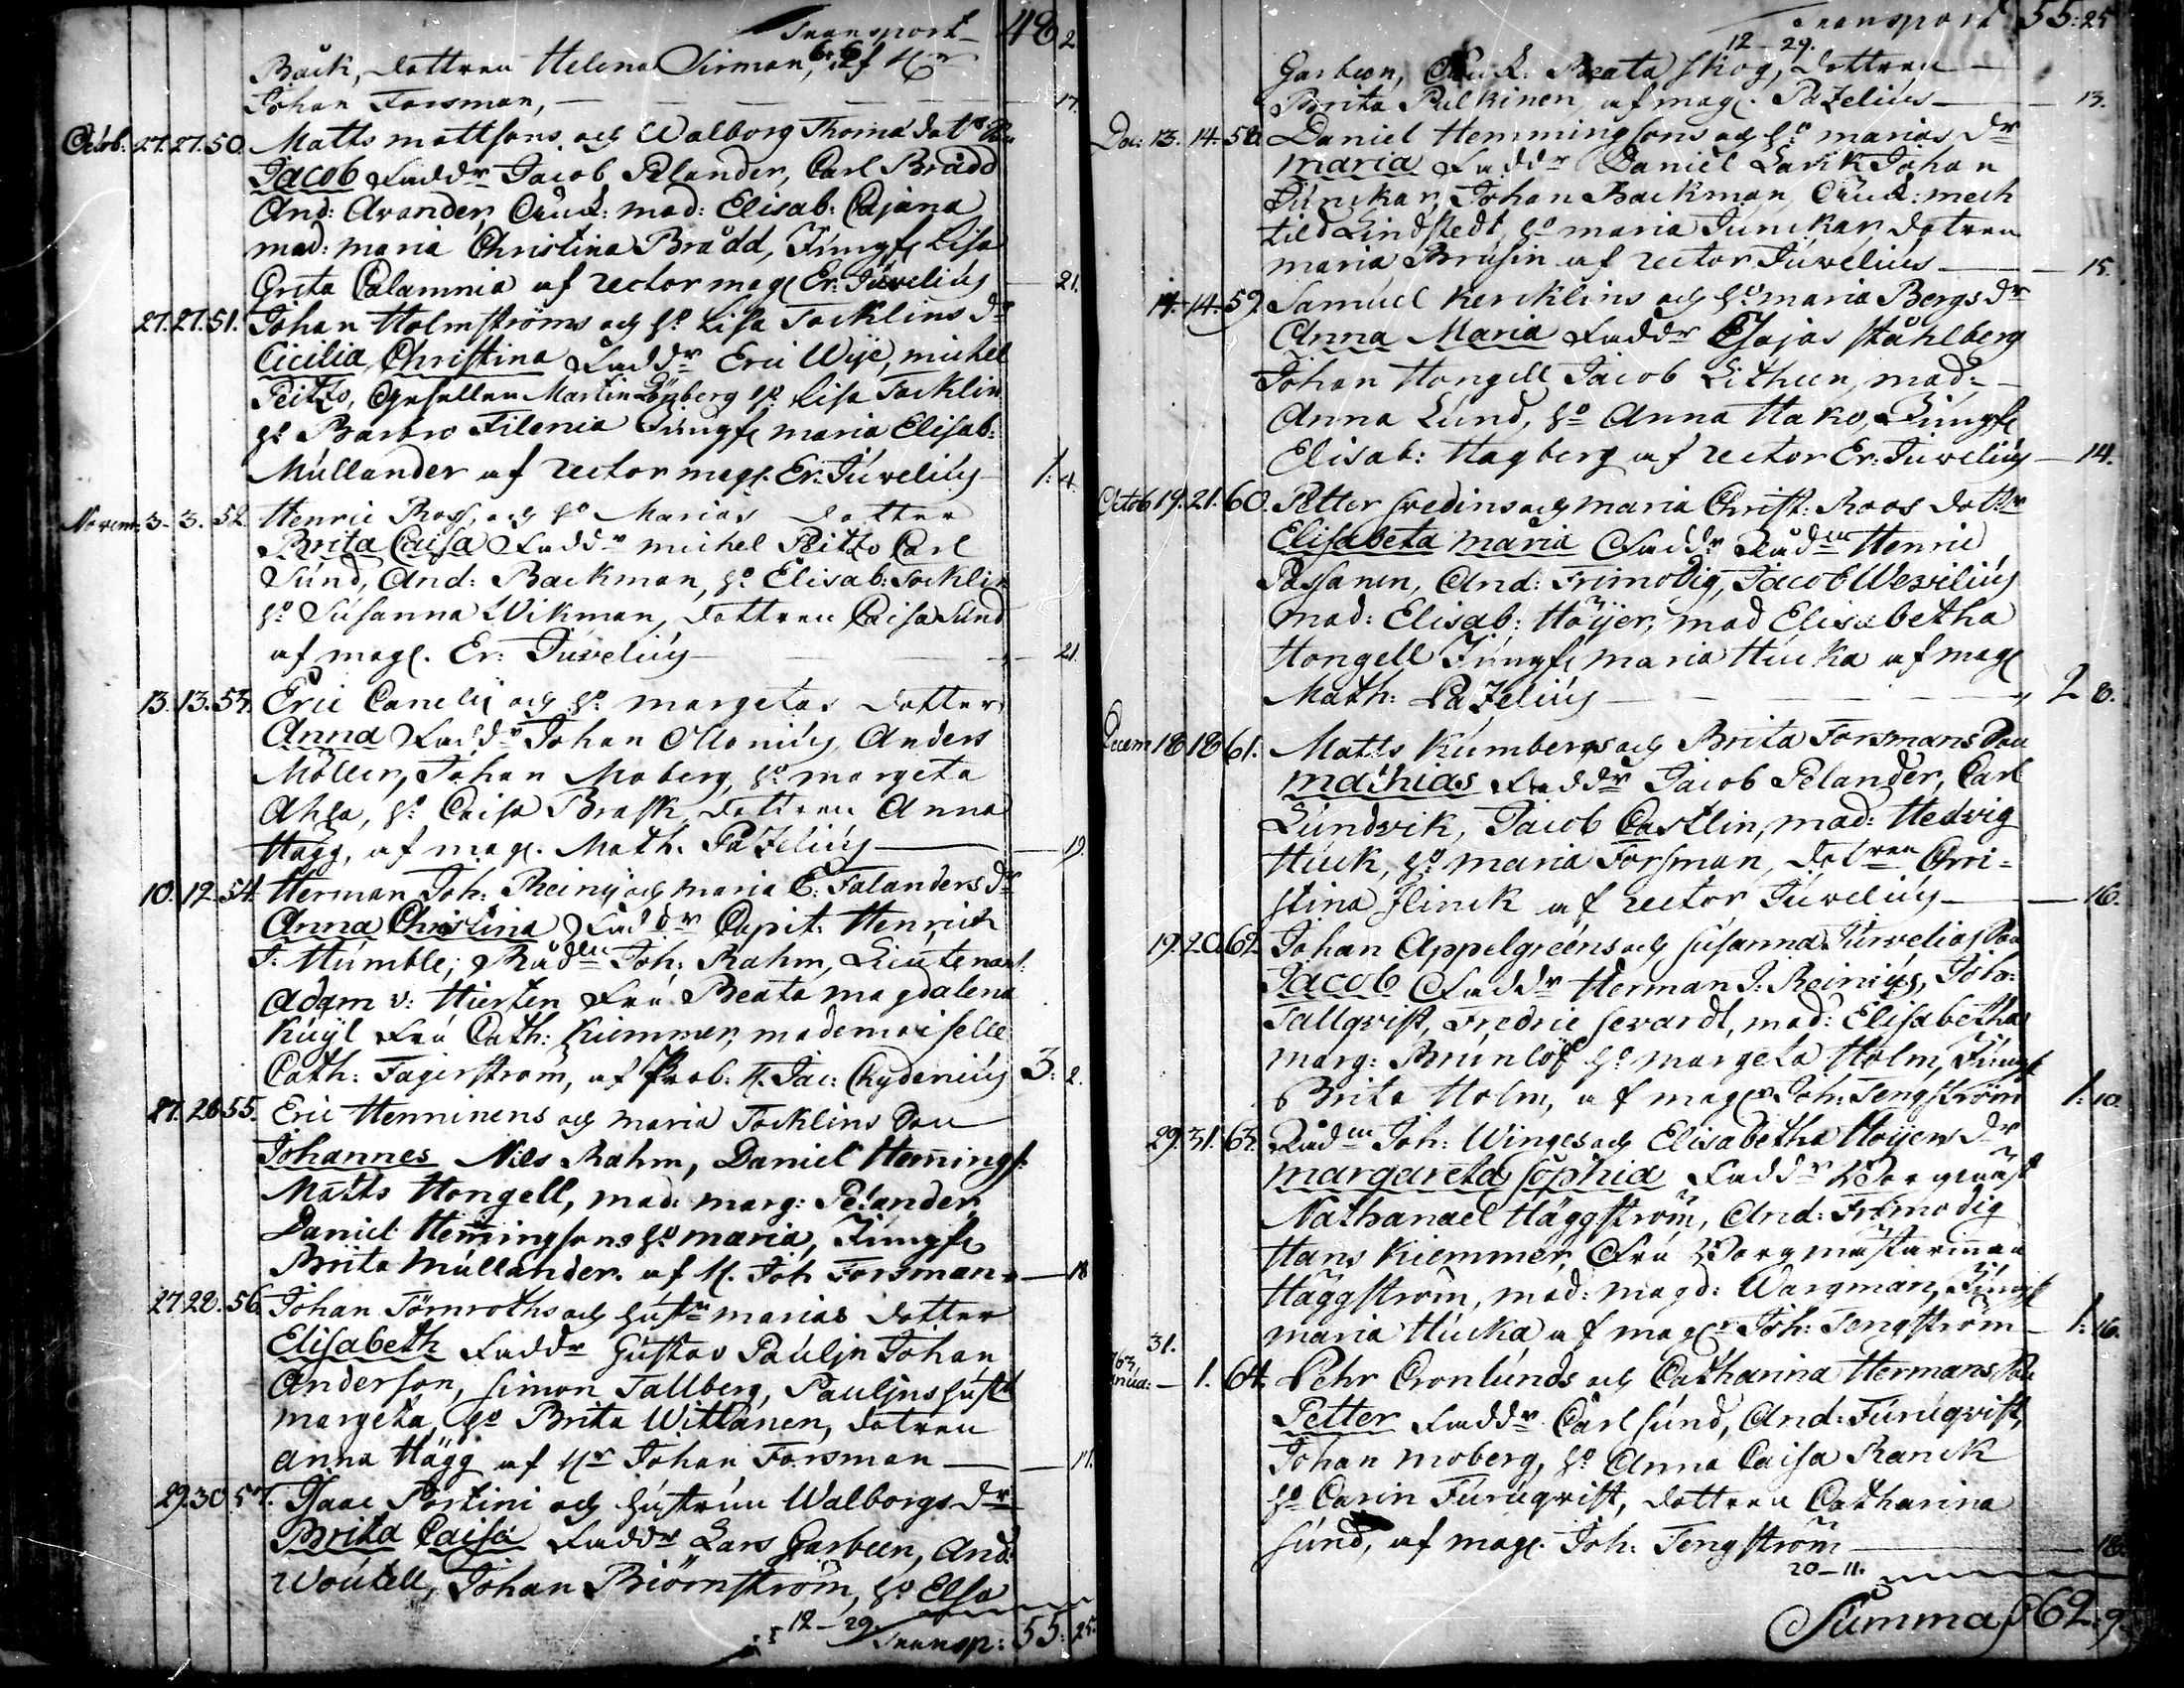 Transport 48 2
Back, dottren Helena Sirman, af Hr
Johan Forsman, 17.
Octob: 27. 27. 50. Matts Mattsons och Walborg Thomæ dotrs Son
Jacob Faddr Jacob Pelander, Carl Brådd
And: Avander, mad: Elisab: Cajana
mad: maria Christina Brådd, Jungf Lisa
Greta Calamnia af rector mag Er: Juvelius 21.
27. 27. 51. Johan Holmströms och ho Lisa Tocklins dr
Cicilia Christina Faddr Eric Wije, michel
Peitzo, Gesellen Martin Lönberg ho Lisa Tocklin
ho Barbro Filenia Jungf maria Elisab:
Mullander af rector mag. Er: Juvelius 1: 4.
Novem. 3. 3. 52. Henric Ross, och ho Marias dotter
Brita Caisa Faddr michel Peitzo Carl
Sund, And: Backman, ho Elisab: Tocklin
ho Susanna Wikman, dottren Caisa Sund
af mag. Er: Juvelius 21.
13. 13. 53. Eric Canelij och ho margetas dotter
Anna Faddr Johan Ollonius Anders
Möller, Johan Moberg, ho margeta
Ahla, ho Caisa Brask, dottren Anna
Hägg, af mag. Math. Pazelius 19.
10. 12. 54. Herman Joh: Reinij och maria E: Falanders dr
Anna Christina Faddr Capit: Henrich
J: Humble, Rådm Joh: Rahm, Lieutenant
Adam v: Hierten Fru Beata magdalena
Kuyl Fru Cath: Kiemmer, mademoiselle
Cath: Fagerström, af Prob: H. Jac: Chydenius 3: 2.
27. 28 55. Eric Henninens och maria Tocklins Son
Johannes Nils Rahm, Daniel Hemmings:
Matts Hongell, mad: marg: Pelander
Daniel Hemmingsons ho maria, Jungf
Brita Mullander. af H. Joh Forsman 18
27 28. 56. Johan Törnroths och hustr marias dotter
Elisabeth Faddr Gustav Paulin Johan
Anderson, Simon Tallberg, Paulins hustr
margeta, ho Brita Wittanen, dotren
anna Hägg af Hr Johan Forsman 11.
29. 30. 57. Isaac Portini och hustrun Walborgs dr
Brita Caisa Faddr Lars Garbeen, And:
Woutell, Johan Biörnström, ho Elsa
12-29. Transp: 55: 25.
Transport 55: 25
12-29.
Garbeen, Beata Skog, dottren
Brita Pulkinen af mag. Pazelius 13.
Dec: 13. 14. 58. Daniel Hemmingsons och ho marias dr
maria Faddr Daniel Larik Johan
Junckar, Johan Backman, mech
tild Lindstedt, ho maria Junckar, dotren
maria Brusin af rector Juvelius 15.
14. 14. 59. Samuel Kercklins och ho maria Bergs dr
Anna Maria Faddr Esajas Ståhlberg
Johan Hongell Jacob Litheen, mad:
Anna Lund, ho Anna Hako, Jungf
Elisab: Hagberg af rector Er: Juvelius 14.
Octob 19. 21. 60. Petter Fredins och maria Christ: Roos dottr
Elisabeta maria Faddr Rådm Henric
Passanen, And: Frimodig, Jacob Wexilius
mad: Elisab: Höijer, mad Elisabetha
Hongell Jungf maria Hucka af mag
Math: Pazelius 2 8.
Decem 18 18 61. Matts Kumbergs och Brita Forsmans Son
mathias Faddr Jacob Pelander, Carl
Lundvik, Jacob Castlin, mad: Hedvig
Huck, ho maria Forsman, Dotren Chri-
stina Flinck af rector Juvelius 16.
19. 20. 62. Johan Appelgréens och Susanna Juvelias Son
Jacob Faddr Herman J: Reinius, Joh:
Tallqvist, Fredric Sevardt, mad: Elisabetha
marg: Brunlöf ho margeta Holm, Jungf
Brita Holm, af magr Joh: Tengström 1: 10.
29. 31. 63. Rådm Joh: Winges och Elisabetha Höijers dr
margareta Sophia Faddr Borgmäst
Nathanael Häggström, And: Frimodig
Hans Kiemmer, Fru Borgmästarinnan
Häggström, mad: magd: Wargman, Jungf
maria Hucka af magr Joh: Tengström 1: 16.
31.
1. 64. Pehr Cronlunds och Catharina Hermans Son
Petter Faddr Carl Sund, And: Furuqvist,
Johan moberg, ho Anna Caisa Ranck
ho Carin Furuqvist, dottren Catharina
Sund, af mag. Joh: Tengström 18.
20-11.
Summa 62. 9.